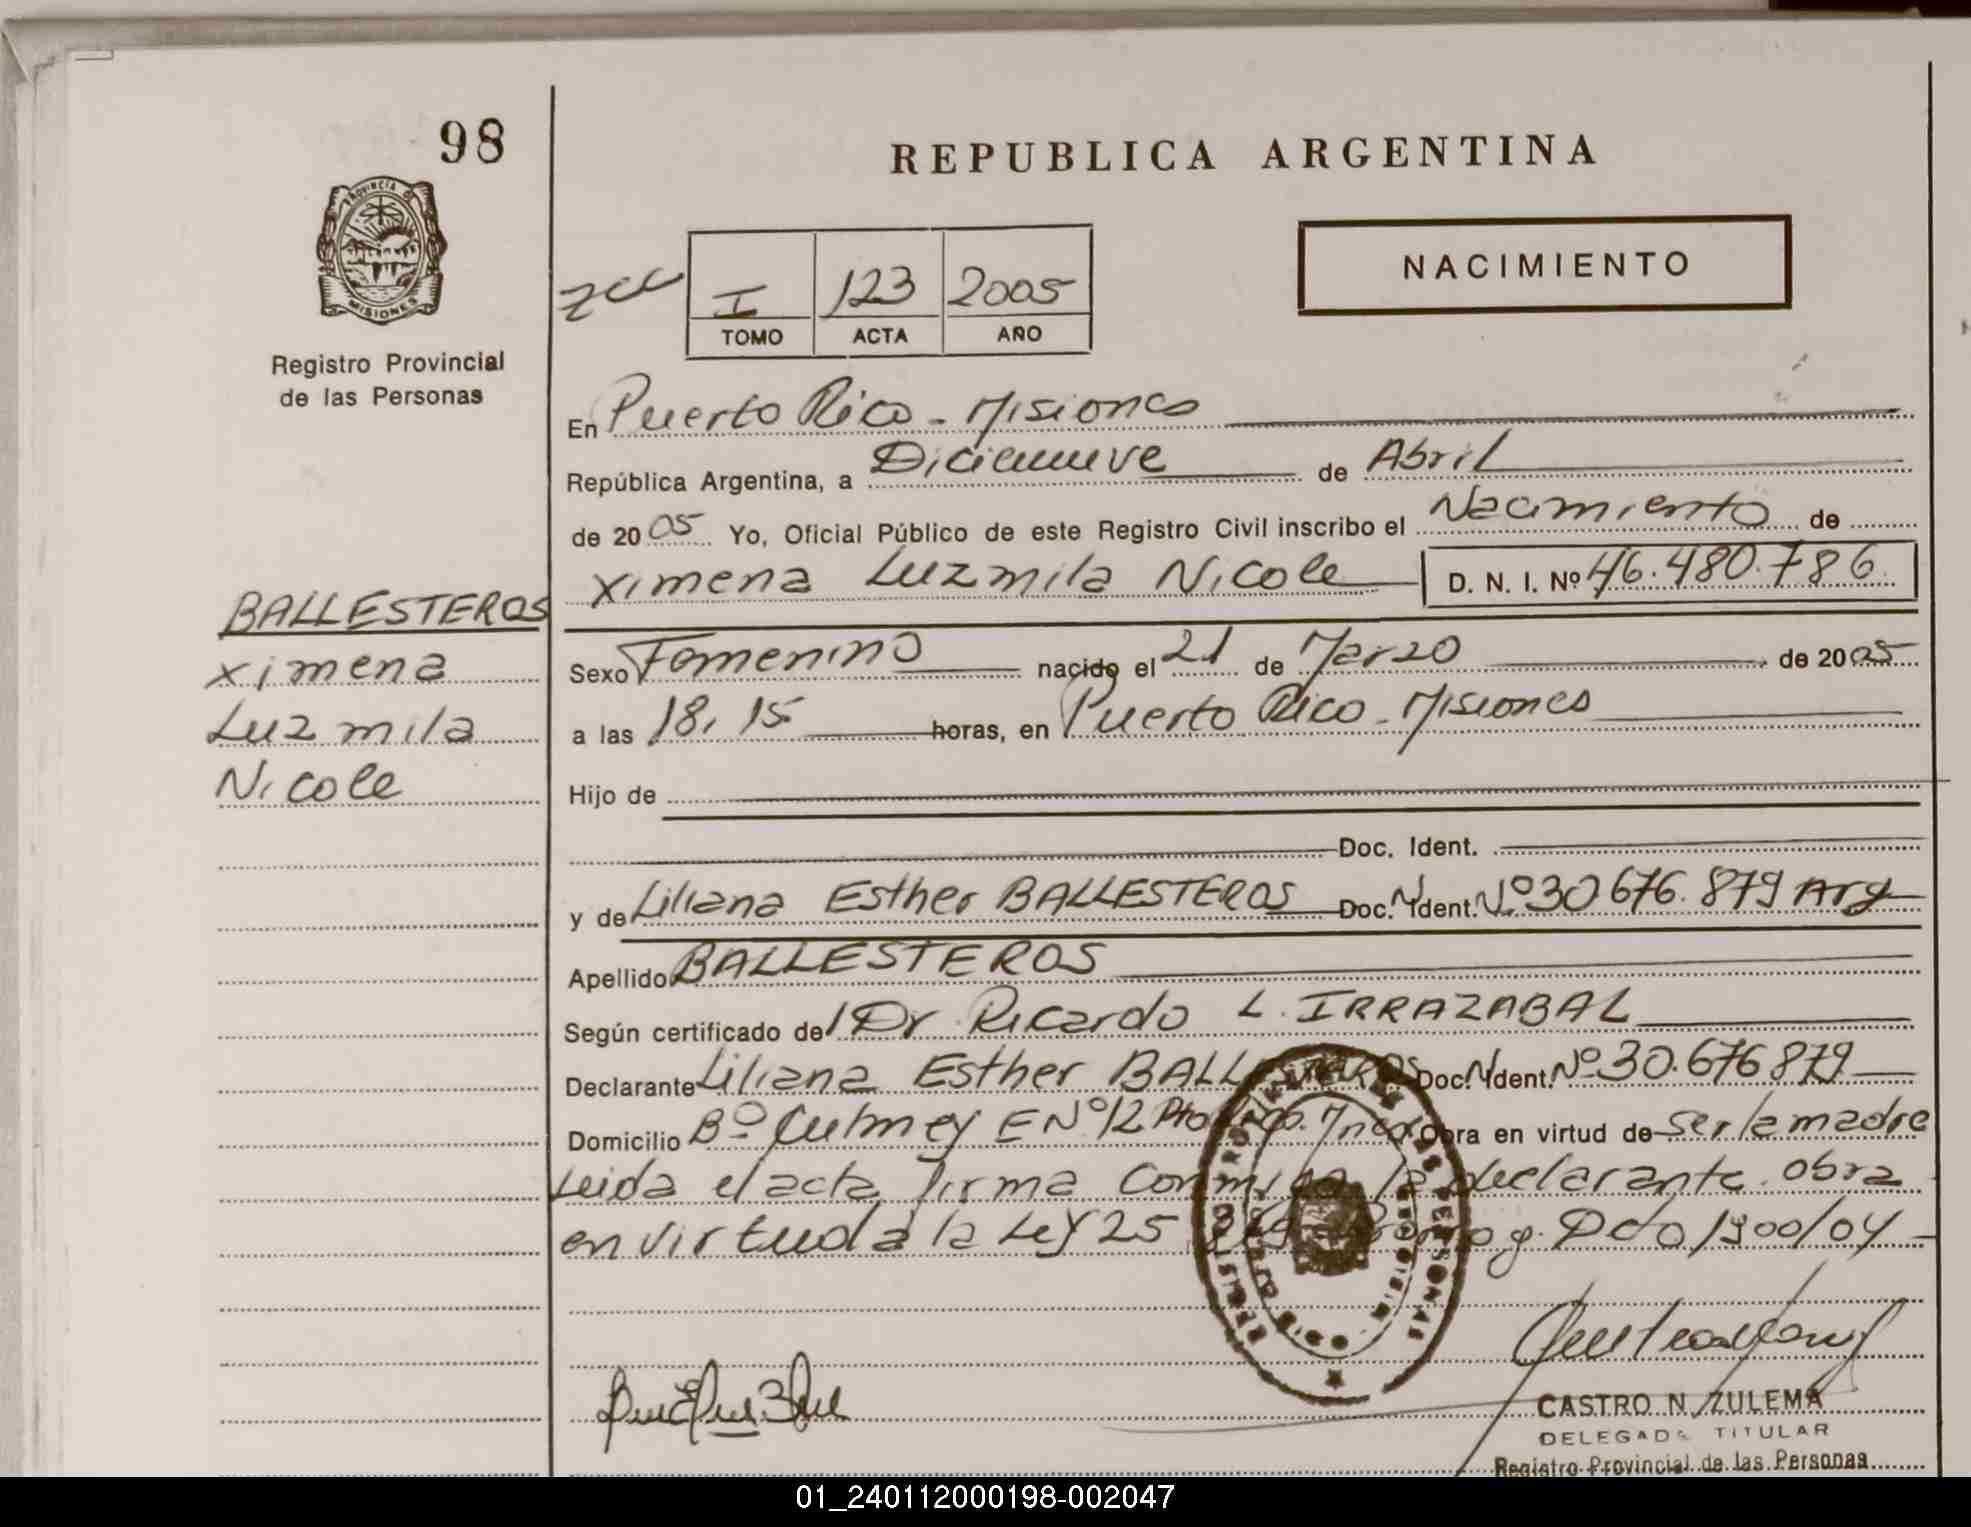 98
REPUBLICA ARGENTINA
PROVINCIA DE
MISIONES
Registro Provincial
de las Personas
NACIMIENTO
I 123 2005
TOMO ACTA AÑO
En Puerto Rico - Misiones
República Argentina, a Diecinueve de Abril
de 2005 Yo, Oficial Público de este Registro Civil inscribo el Nacimiento de
Ximena Luzmila Nicole D. N. I. Nº 46.480.786
BALLESTEROS
Ximena
Luzmila
Nicole
Sexo Femenino nacido el 21 de Marzo de 2005
a las 18,15 horas, en Puerto Rico - Misiones
Hijo de
Doc. Ident.
y de Liliana Esther BALLESTEROS Doc. Ident. Nº 30 676.879 Arg
Apellido BALLESTEROS
Según certificado del Dr. Ricardo L. IRRAZABAL
Declarante Liliana Esther BALLESTEROS Doc. Ident. Nº 30.676879
Domicilio Bº Culmey E Nº 12 Pto Obra en virtud de ser la madre
Leida el acta firma conmigo la declarante. obra
en virtud a la Ley 25 Dcto 1900/04
CASTRO N. ZULEMA
DELEGADA TITULAR
Registro Provincial de las Personas
01_240112000198-002047